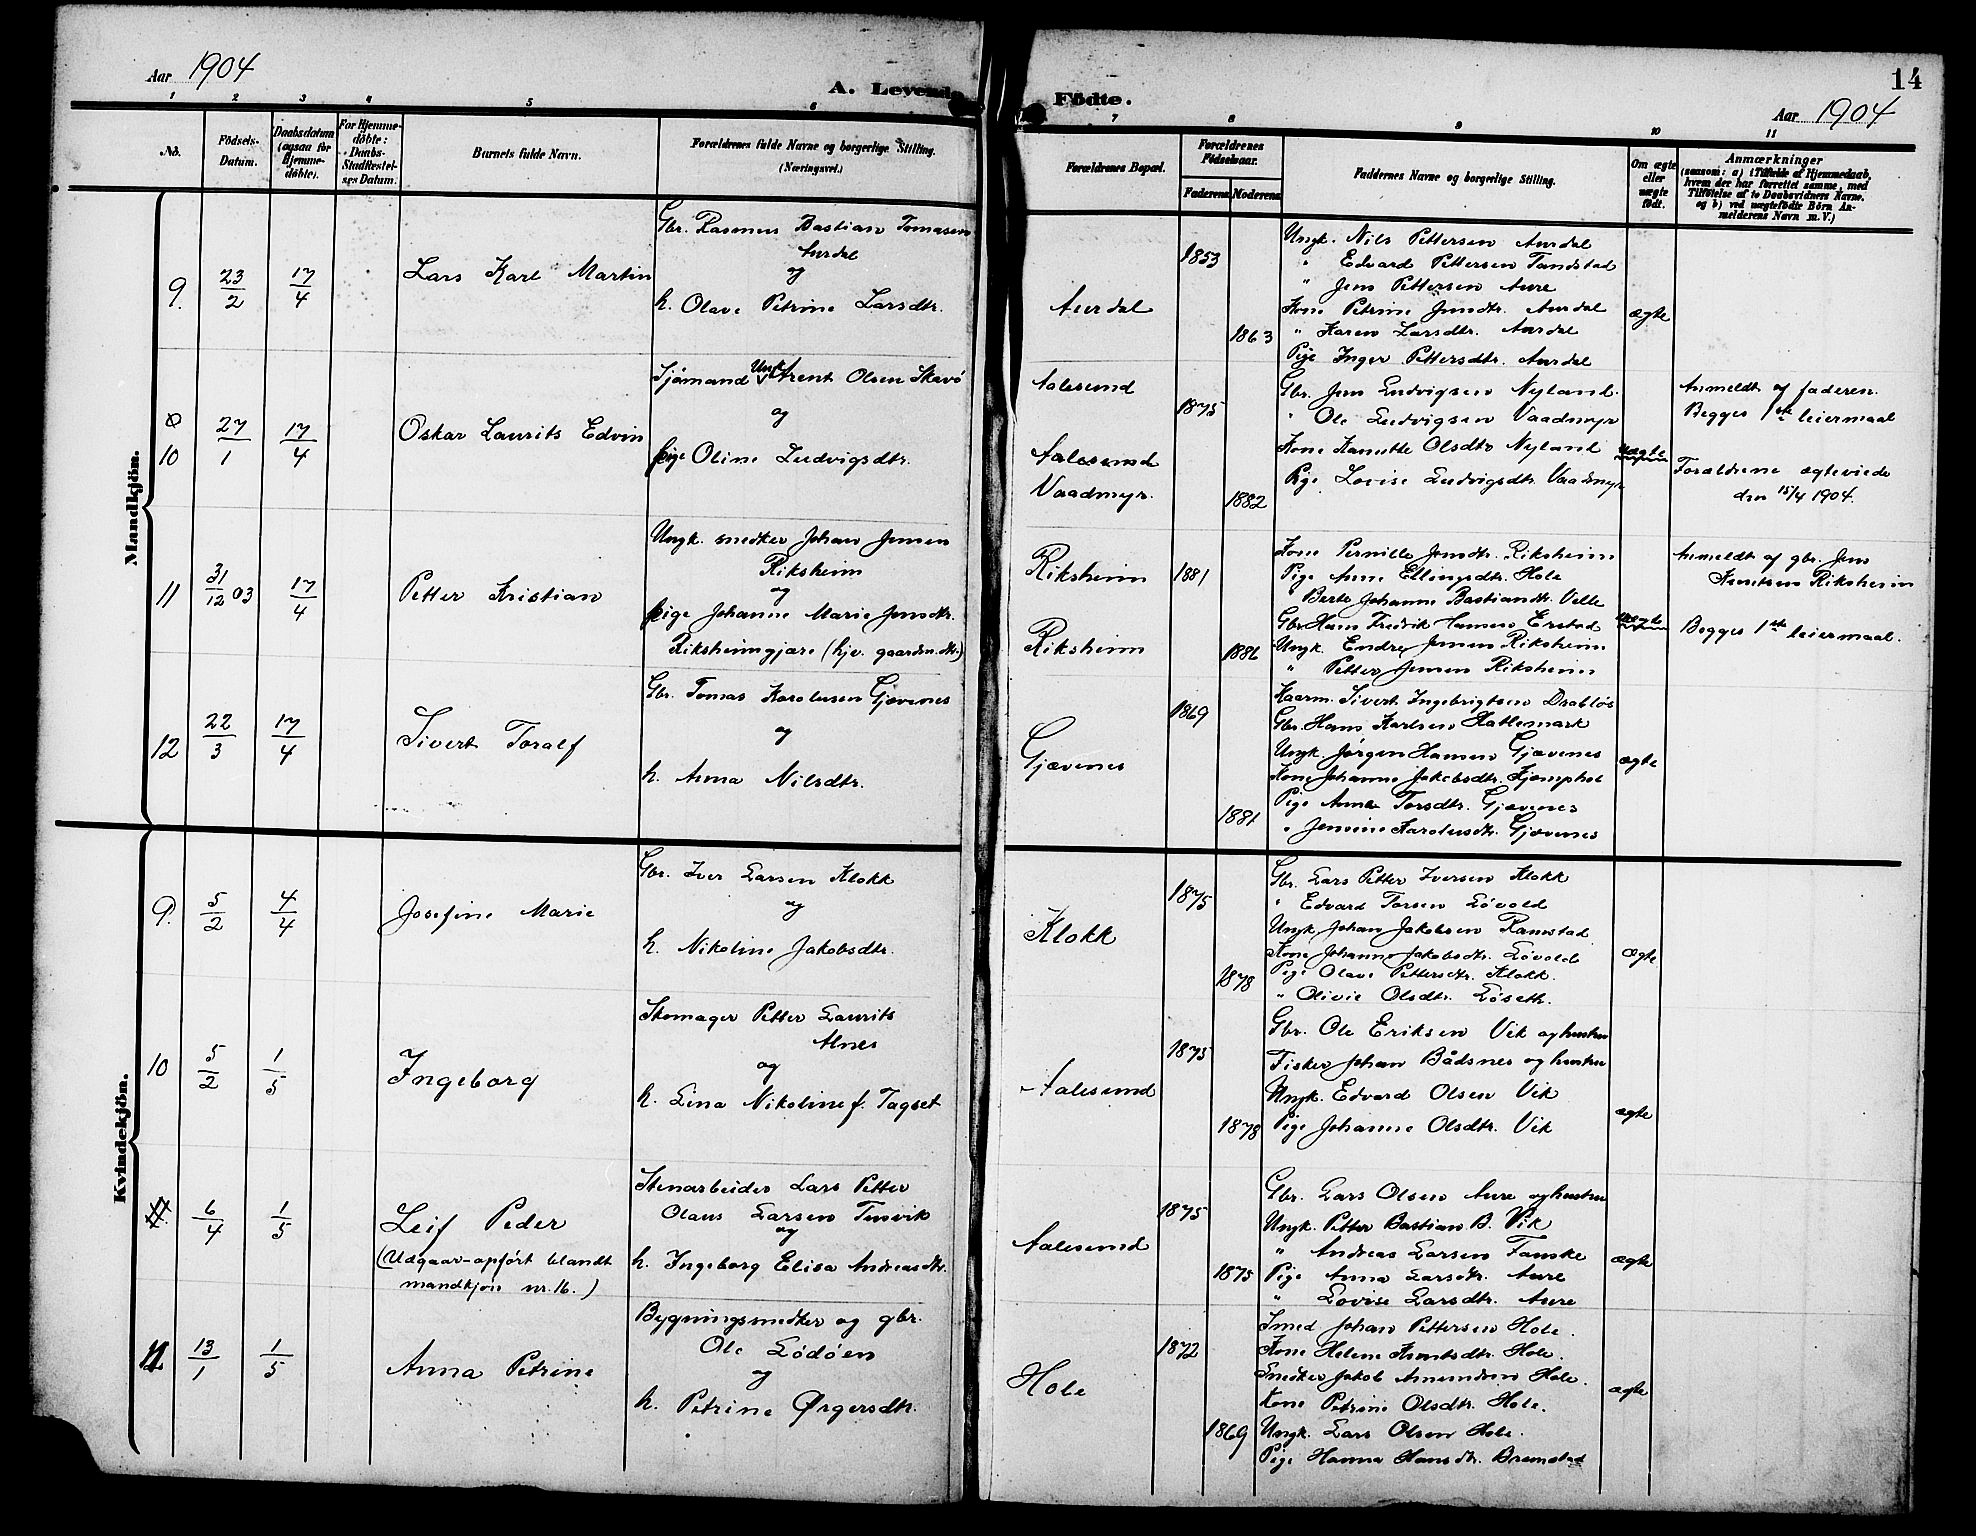 Aar 1904
A. Levende Fødte.
14
Aar 1904
1 2 3 4 5 6 7 8 9 10 11
No.
Födsels-
Datum.
Daabsdatum
(ogsaa for
Hjemme-
döbte).
For Hjemme-
döbte:
Daabs-
Stadfæstel-
ses Datum.
Barnets fulde Navn.
Forældrenes fulde Navne og borgerlige Stilling.
(Næringsvei.)
Forældrenes Bopæl.
Forældrenes
Födselsaar.
Faderens Moderens
Faddernes Navne og borgerlige Stilling.
Om ægte
eller
uægte
födt.
Anmærkninger
(saasom: a) i Tilfælde af Hjemmedaab,
hvem der har forrettet samme, med
Tilföielse af to Daabsvidners Navne.
og b) ved uægtefödte Börn An-
melderens Navn m. V.)
Mandkjön.
9. 23/2 17/4 Lars Karl Martin
Gbr. Rasmus Bastian Tomasen
Aurdal
og
h. Olave Petrine Larsdtr.
Aurdal
1853
1863
Ungk. Nils Pettersen Aurdal
" Edvard Pettersen Tandstad
" Jens Pettersen Aure
Kone Petrine Jensdtr. Aurdal
" Karen Larsdtr. Aurdal
Pige Inger Pettersdtr. Aurdal
ægte
10 27/1 17/4 Oskar Laurits Edvin
Sjömand Ungk. Arent Olsen Skavö
og
pige Oline Ludvigsdtr.
Aalesund
Aalesund
Vaadmyr.
1875
1882
Gbr. Jens Ludvigsen Nyland.
" Ole Ludvigsen Vaadmyr
Kone Kanutte Olsdtr Nyland
Pige Lovise Ludvigsdtr. Vaadmyr
uægte
Anmeldt af faderen.
Begges 1ste leiermaal
Forældrene ægteviede
den 15/4 1904.
11 31/12 03 17/4 Petter Kristian
Ungk. snedker Johan Jensen
Riksheim
og
pige Johanne Marie Jensdtr.
Riksheimgjære (hjv. gaardm.dtr.)
Riksheim
Riksheim
1881
1886
Kone Pernille Jensdtr. Riksheim
Pige Anne Ellingsdtr. Hole
" Berte Johanne Bastiandtr. Velle
Gbr. Hans Fredrik Hansen Erstad
Ungk. Endre Jensen Riksheim
" Petter Jensen Riksheim
uægte
Anmeldt af gbr. Jens
Knutsen Riksheim
Begges 1ste leiermaal.
12 22/3 17/4 Sivert Toralf
Gbr. Tomas Karolusen Gjævenes
og
h. Anna Nilsdtr.
Gjævenes
1869
1881
Kaarm. Sivert Ingebrigtsen Drabløs
Gbr. Hans Karlsen Hatlemark
Ungk. Jørgen Hansen Gjævenes
Kone Johanne Jakobsdtr. Kjemphol
Pige Anna Torsdtr. Gjævenes
" Jensine Karolusdtr. Gjævenes
ægte
Kvindekjön.
9. 5/2 4/4 Josefine Marie
Gbr. Iver Larsen Klokk
og
h. Nikoline Jakobsdtr.
Klokk
1875
1878
Gbr. Lars Petter Iversen Klokk
" Edvard Torsen Lövold
Ungk Johan Jakobsen Ramstad
Kone Johanne Jakobsdtr. Lövold
Pige Olave Pettersdtr. Klokk.
" Olivie Olsdtr. Löseth.
ægte
10 5/2 1/5 Ingeborg
Skomager Petter Laurits
Alnes
og
h. Lina Nikoline f. Tagset
Aalesund
1875
1878
Gbr. Ole Eriksen Vik og hustru
Fisker Johan Bådsnes og hustru
Ungk. Edvard Olsen Vik
Pige Johanne Olsdtr. Vik
ægte
11. 6/4 1/5 Leif Peder
(Udgaar-opført blandt
mandkjøn nr. 16.)
Stenarbeider Lars Petter
Olaus Larsen Tusvik
og
h. Ingeborg Elisa Andreasdtr.
Aalesund
1875
1875
Gbr. Lars Olsen Aure og hustru
Ungk. Petter Bastian B. Vik
" Andreas Larsen Fauske
Pige Anna Larsdtr. Aure
" Lovise Larsdtr. Aure
ægte
11 13/1 1/5 Anna Petrine
Bygningssnedker og gbr.
Ole Lödöen
og
h. Petrine Ørgersdtr.
Hole
1872
1869
Smed Johan Pettersen Hole.
Kone Helene Knutsdtr. Hole.
Snedker Jakob Amundsen Hole.
Kone Petrine Olsdtr. Hole.
Ungk. Lars Olsen Hole.
Pige Hanna Hansdtr. Bremstad
ægte